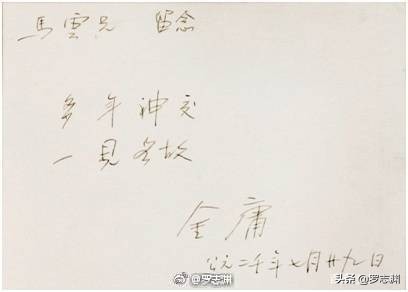 馬雲兄 留念
多年神交
一見如故
金庸
公元二千年七月廿九日
@罗志渊
头条 @罗志渊